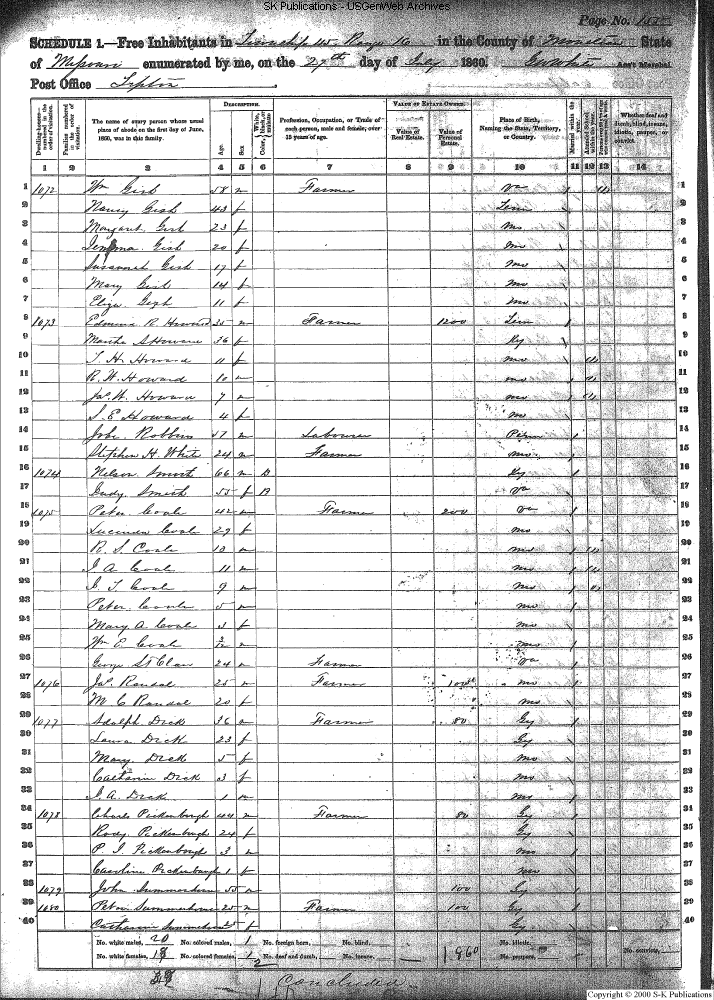 SK Publications - USGenWeb Archives
Page No.
SCHEDULE 1.—Free Inhabitants in Township 45 Range 16 in the County of Moniteau State
of Missouri enumerated by me, on the 27th day of July 1860. Ass't Marshal
Post Office Tipton
Dwelling-houses—numbered in the order of visitation.
Families numbered in the order of visitation.
The name of every person whose usual place of abode on the first day of June, 1860, was in this family.
DESCRIPTION.
Age.
Sex.
Color, White, black, or mulatto
Profession, Occupation, or Trade of each person, male and female, over 15 years of age.
VALUE OF ESTATE OWNED.
Value of Real Estate.
Value of Personal Estate.
Place of Birth, Naming the State, Territory, or Country.
Married within the year.
Attended School within the year.
Whether deaf and dumb, blind, insane, idiotic, pauper, or convict.
1 2 3 4 5 6 7 8 9 10 11 12 13 14
1 1072 Wm Gish 58 m Farmer Va 1
2 Nancy Gish 43 f Tenn 2
3 Margaret Gish 23 f Mo 3
4 Gish 20 f Mo 4
5 Susannah Gish 17 f Mo 5
6 Mary Gish 14 f Mo 6
7 Eliza Gish 11 f Mo 7
8 1073 Edmund R Howard 35 m Farmer 1200 Tenn 8
9 Martha S Howard 36 f Ky 9
10 T. H. Howard 11 f Mo 10
11 R. W. Howard 10 m Mo 11
12 Jas. W. Howard 7 m Mo 12
13 S. E. Howard 4 f Mo 13
14 Robbins 57 m Labourer 14
15 Stephen H. White 24 m Farmer Mo 15
16 1074 Nelson Smith 66 m B Ky 16
17 Judy Smith 55 f B Va 17
18 1075 Peter Coale 42 m Farmer 200 Va 18
19 Lucinda Coale 29 f Mo 19
20 R. S. Coale 13 m Mo 20
21 J. A. Coale 11 m Mo 21
22 J. T. Coale 9 m Mo 22
23 Peter Coale 5 m Mo 23
24 Mary A. Coale 3 f Mo 24
25 Wm E. Coale m Mo 25
26 George St Clair 24 m Farmer Va 26
27 1076 Jas. Randal 25 m Farmer 100 Mo 27
28 M. C. Randal 20 f Mo 28
29 1077 Adolph Dick 36 m Farmer 80 Gy 29
30 Laura Dick 23 f Gy 30
31 Mary Dick 5 f Mo 31
32 Catharin Dick 3 f Mo 32
33 J. A. Dick 1 m Mo 33
34 1078 Charls Pickenbaugh 44 m Farmer 80 Gy 34
35 Rody Pickenbaugh 24 f Gy 35
36 P. J. Pickenbaugh 3 m Mo 36
37 Caroline Pickenbaugh 1 f Mo 37
38 1079 John Summerhaus 55 m 100 Gy 38
39 1080 Peter Summerhaus 25 m Farmer 100 Gy 39
40 Catharine Summerhaus 25 f Gy 40
No. white males, 20 No. colored males, 1 No. foreign born, No. blind, No. idiotic,
No. white females, 18 No. colored females, 1 No. deaf and dumb, No. insane, 1860 No. paupers, No. convicts,
2
Concluded
Copyright © 2000 S-K Publications